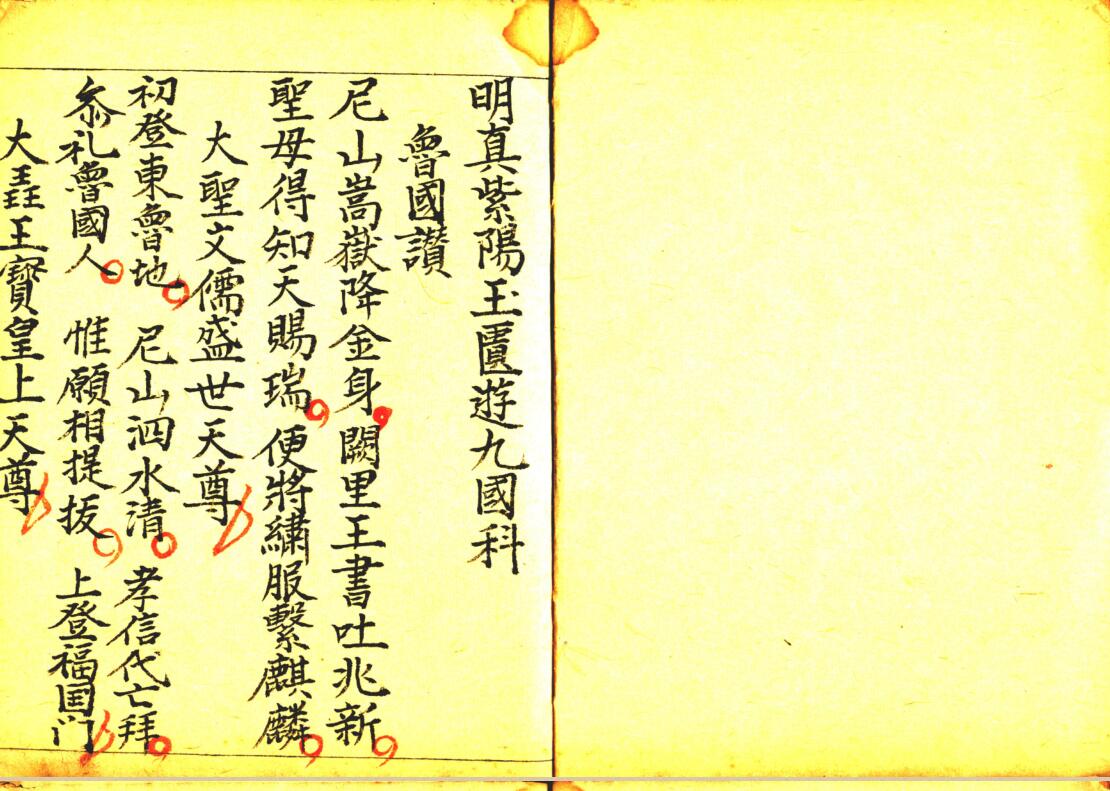 明真紫陽玉匱遊九國科
魯國讃
尼山嵩嶽降金身闕里王書吐兆新
聖母得知天賜瑞便將繡服繫麒麟
大聖文儒盛世天尊
初登東魯地 尼山泗水清 孝信代亡拜
叅礼魯國人 惟願相提拔 上登福国门
大𡈽王寶皇上天尊